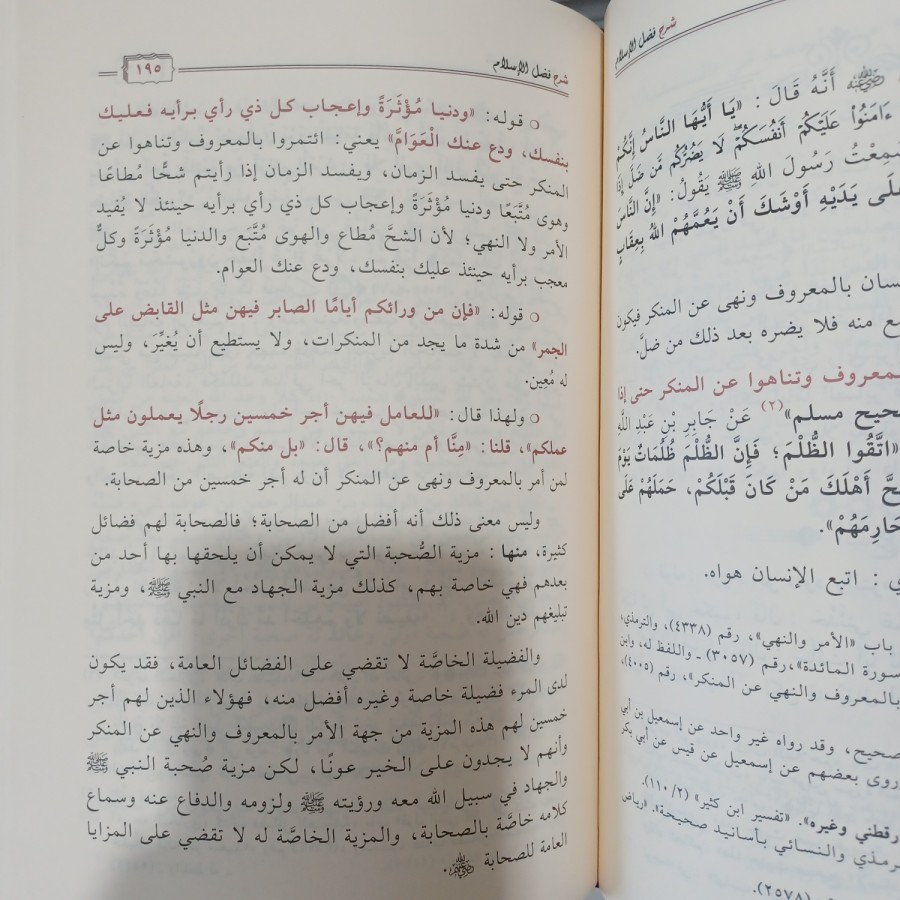 شرح فضل الإسلام
أنَّهُ قَالَ: «يَا أَيُّهَا النَّاسُ إِنَّكُمْ
ءَامَنُوا۟ عَلَيْكُمْ أَنفُسَكُمْ ۖ لَا يَضُرُّكُم مَّن ضَلَّ إِذَا
سَمِعْتُ رَسُولَ اللهِ ﷺ يَقُولُ: «إِنَّ النَّاسَ
عَلَى يَدَيْهِ أَوْشَكَ أَنْ يَعُمَّهُمْ اللهُ بِعِقَابٍ
بالمعروف ونهى عن المنكر فيكون
منه فلا يضره بعد ذلك من ضلَّ.
وتناهوا عن المنكر حتى إذا
مسلم»(٢) عَنْ جَابِرِ بْنِ عَبْدِ اللَّهِ
«اتَّقُوا الظُّلْمَ؛ فَإِنَّ الظُّلْمَ ظُلُمَاتٌ يَوْمَ
أَهْلَكَ مَنْ كَانَ قَبْلَكُمْ، حَمَلَهُمْ عَلَى
: اتبع الإنسان هواه.
باب «الأمر والنهي»، رقم (٤٣٣٨)، والترمذي،
سورة المائدة»، رقم (٣٠٥٧) ـ واللفظ له، وابن
بالمعروف والنهي عن المنكر»، رقم (٤٠٠٥)،
صحيح، وقد رواه غير واحد عن إسمعيل بن أبي
بعضهم عن إسمعيل عن قيس عن أبي بكر
وغيره». «تفسير ابن كثير» (٢/ ١١٠).
والنسائي بأسانيد صحيحة». «رياض
(٢٥٧٨).
شرح فضل الإسلام
١٩٥
○ قوله: «ودنيا مُؤْثَرَةً وإعجاب كل ذي رأي برأيه فعليك
بنفسك، ودع عنك الْعَوَامَّ» يعني: ائتمروا بالمعروف وتناهوا عن
المنكر حتى يفسد الزمان، ويفسد الزمان إذا رأيتم شحًّا مُطاعًا
وهوى مُتَّبَعًا ودنيا مُؤْثَرَةً وإعجاب كل ذي رأي برأيه حينئذ لا يُفيد
الأمر ولا النهي؛ لأن الشحَّ مُطاع والهوى مُتَّبَع والدنيا مُؤْثَرَة وكلٌّ
معجب برأيه حينئذ عليك بنفسك، ودع عنك العوام.
○ قوله: «فإن من ورائكم أيامًا الصابر فيهن مثل القابض على
الجمر» من شدة ما يجد من المنكرات، ولا يستطيع أن يُغَيِّرَ، وليس
له مُعِين.
○ ولهذا قال: «للعامل فيهن أجر خمسين رجلًا يعملون مثل
عملكم»، قلنا: «مِنَّا أم منهم؟»، قال: «بل منكم»، وهذه مزية خاصة
لمن أمر بالمعروف ونهى عن المنكر أن له أجر خمسين من الصحابة.
وليس معنى ذلك أنه أفضل من الصحابة؛ فالصحابة لهم فضائل
كثيرة، منها: مزية الصُّحبة التي لا يمكن أن يلحقها بها أحد من
بعدهم فهي خاصة بهم، كذلك مزية الجهاد مع النبي ﷺ، ومزية
تبليغهم دين الله.
والفضيلة الخاصَّة لا تقضي على الفضائل العامة، فقد يكون
لدى المرء فضيلة خاصة وغيره أفضل منه، فهؤلاء الذين لهم أجر
خمسين لهم هذه المزية من جهة الأمر بالمعروف والنهي عن المنكر
وأنهم لا يجدون على الخير عونًا، لكن مزية صُحبة النبي ﷺ
والجهاد في سبيل الله معه ورؤيته ﷺ ولزومه والدفاع عنه وسماع
كلامه خاصَّة بالصحابة، والمزية الخاصَّة له لا تقضي على المزايا
العامة للصحابة ﷺ.